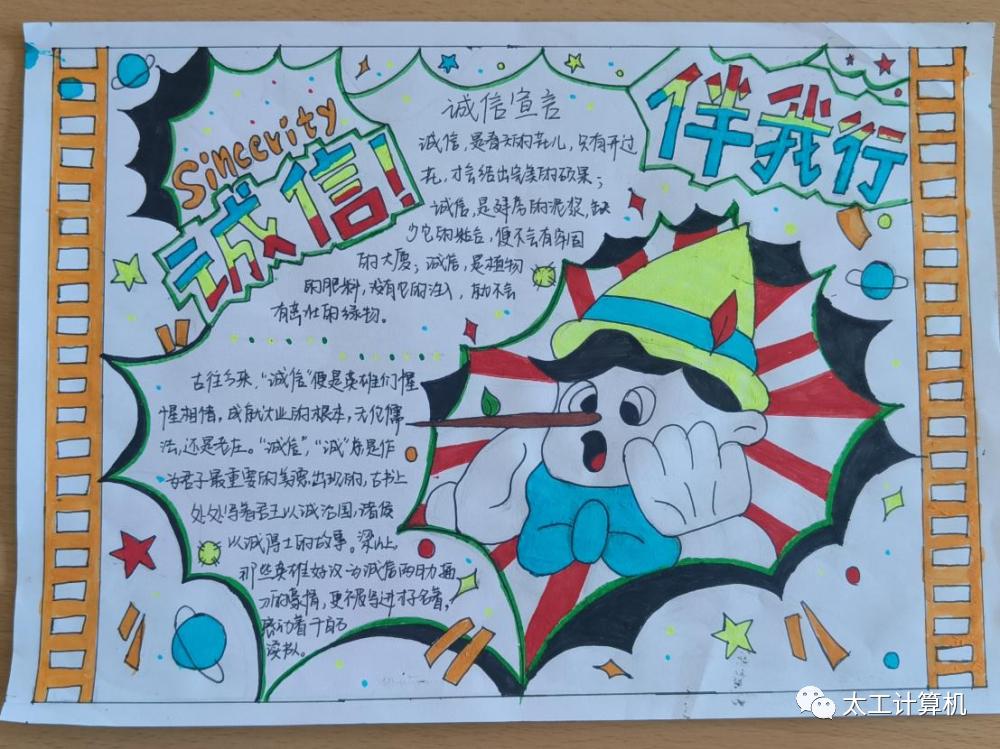 Sincerity
诚信!
伴我行
诚信宣言
诚信,是春天的花儿,只有开过
花,才会结出完美的硕果;
诚信,是建房的泥浆,缺
少它的粘合,便不会有牢固
的大厦;诚信,是植物
的肥料,没有它的注入,就不会
有茁壮的绿物。
古往今来,“诚信”便是英雄们惺
惺相惜,成就大业的根本,无论儒
法,还是老庄。“诚信”,“诚”总是作
为君子最重要的美德出现的,古书上
处处写着君王以诚治国,诸侯
以诚得士的故事。梁山上
那些英雄好汉为诚信两肋插
刀的豪情,更被写进了名著,
感动着千百
读书人。
太工计算机